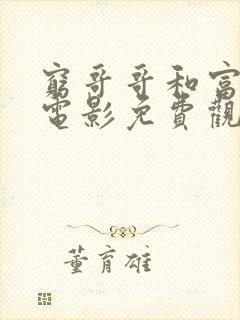 窮哥哥和富
電影免費觀
董育雄